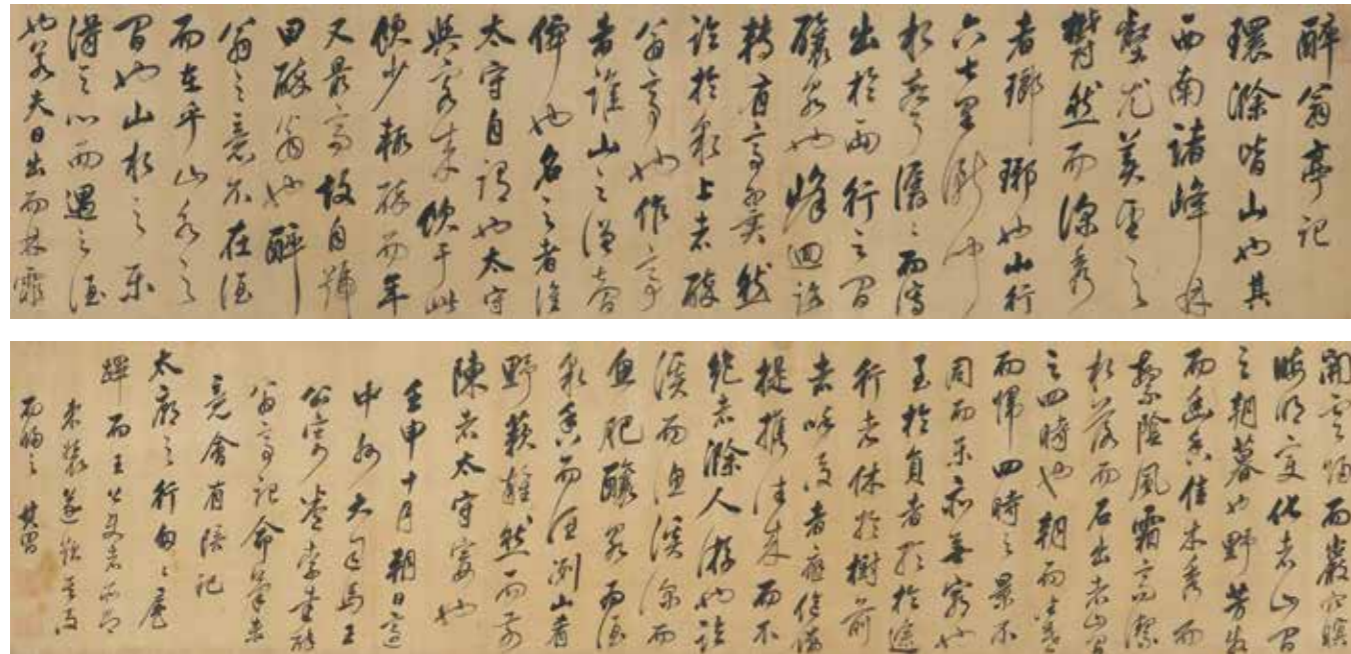 醉翁亭記
環滁皆山也其
西南諸峰林
壑尤美望之
蔚然而深秀
者瑯琊也山行
六七里漸聞
水聲潺〻而瀉
出於兩行之間
釀泉也峰回路
轉有亭翼然
臨於泉上者醉
翁亭也作亭
者誰山之僧智
僊也名之者誰
太守自謂也太守
與客來飲于此
飲少輒醉而年
又最高故自號
曰醉翁也醉
翁之意不在酒
而在乎山水之
間也山水之樂
得之心而遇之酒
也若夫日出而林霏
開雲歸而巖穴暝
晦明變化者山間
之朝暮也野芳發
而幽香佳木秀而
繁陰風霜高潔
水落而石出者山間
之四時也朝而往暮
而歸四時之景不
同而樂亦無窮也
至於負者歌於途
行者休於樹前
者呼後者應傴僂
提攜往來而不
絕者滁人游也臨
溪而漁溪深而
魚肥釀泉而酒
泉香而酒洌山肴
野蔌雜然而前
陳者太守宴也
壬申十月朔日過
中州大司馬王
公寓
翁亭記命筆書
竟會有陪祀
太廟之行匆〻
而歸之 其昌